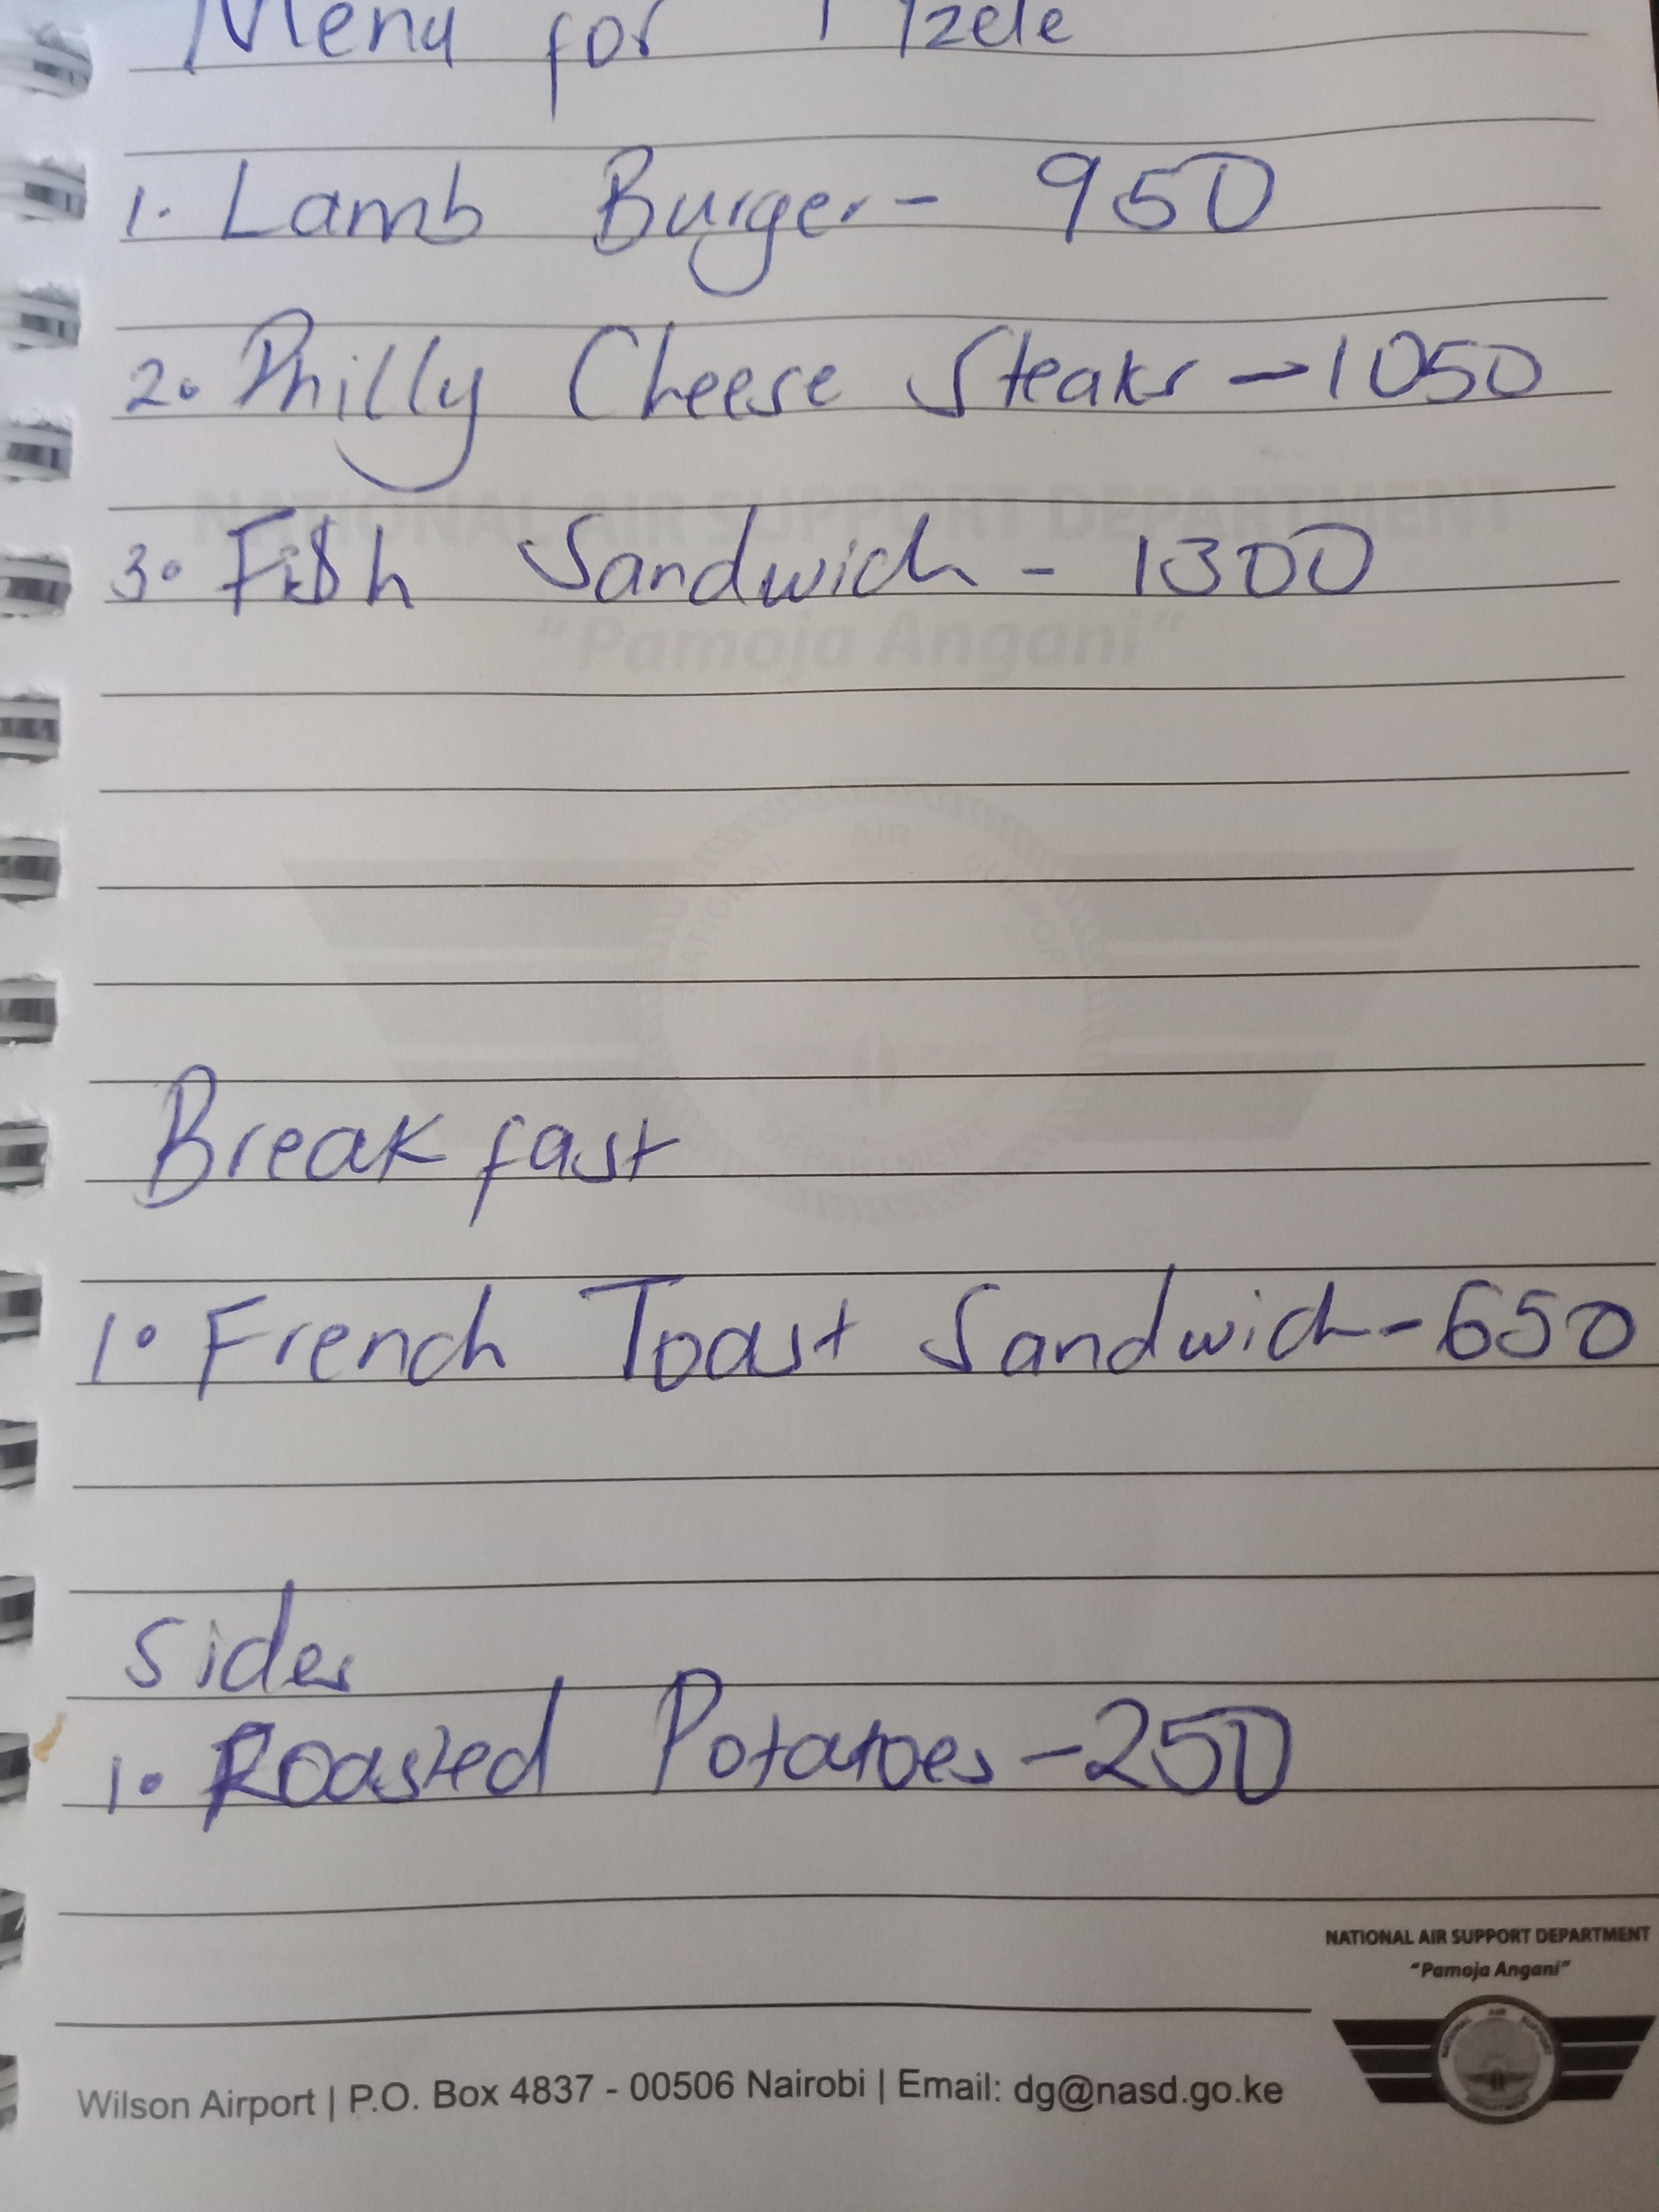 Menu for
1. Lamb Burger - 950
2. Philly Cheese Steaks - 1050
NATIONAL AIR SUPPORT DEPARTMENT
3. Fish Sandwich - 1300
"Pamoja Angani"
NATIONAL AIR SUPPORT
DEPARTMENT
Breakfast
1. French Toast Sandwich - 650
Sides
1. Roasted Potatoes - 250
NATIONAL AIR SUPPORT DEPARTMENT
"Pamoja Angani"
NATIONAL AIR SUPPORT
DEPARTMENT
Wilson Airport | P.O. Box 4837 - 00506 Nairobi | Email: dg@nasd.go.ke